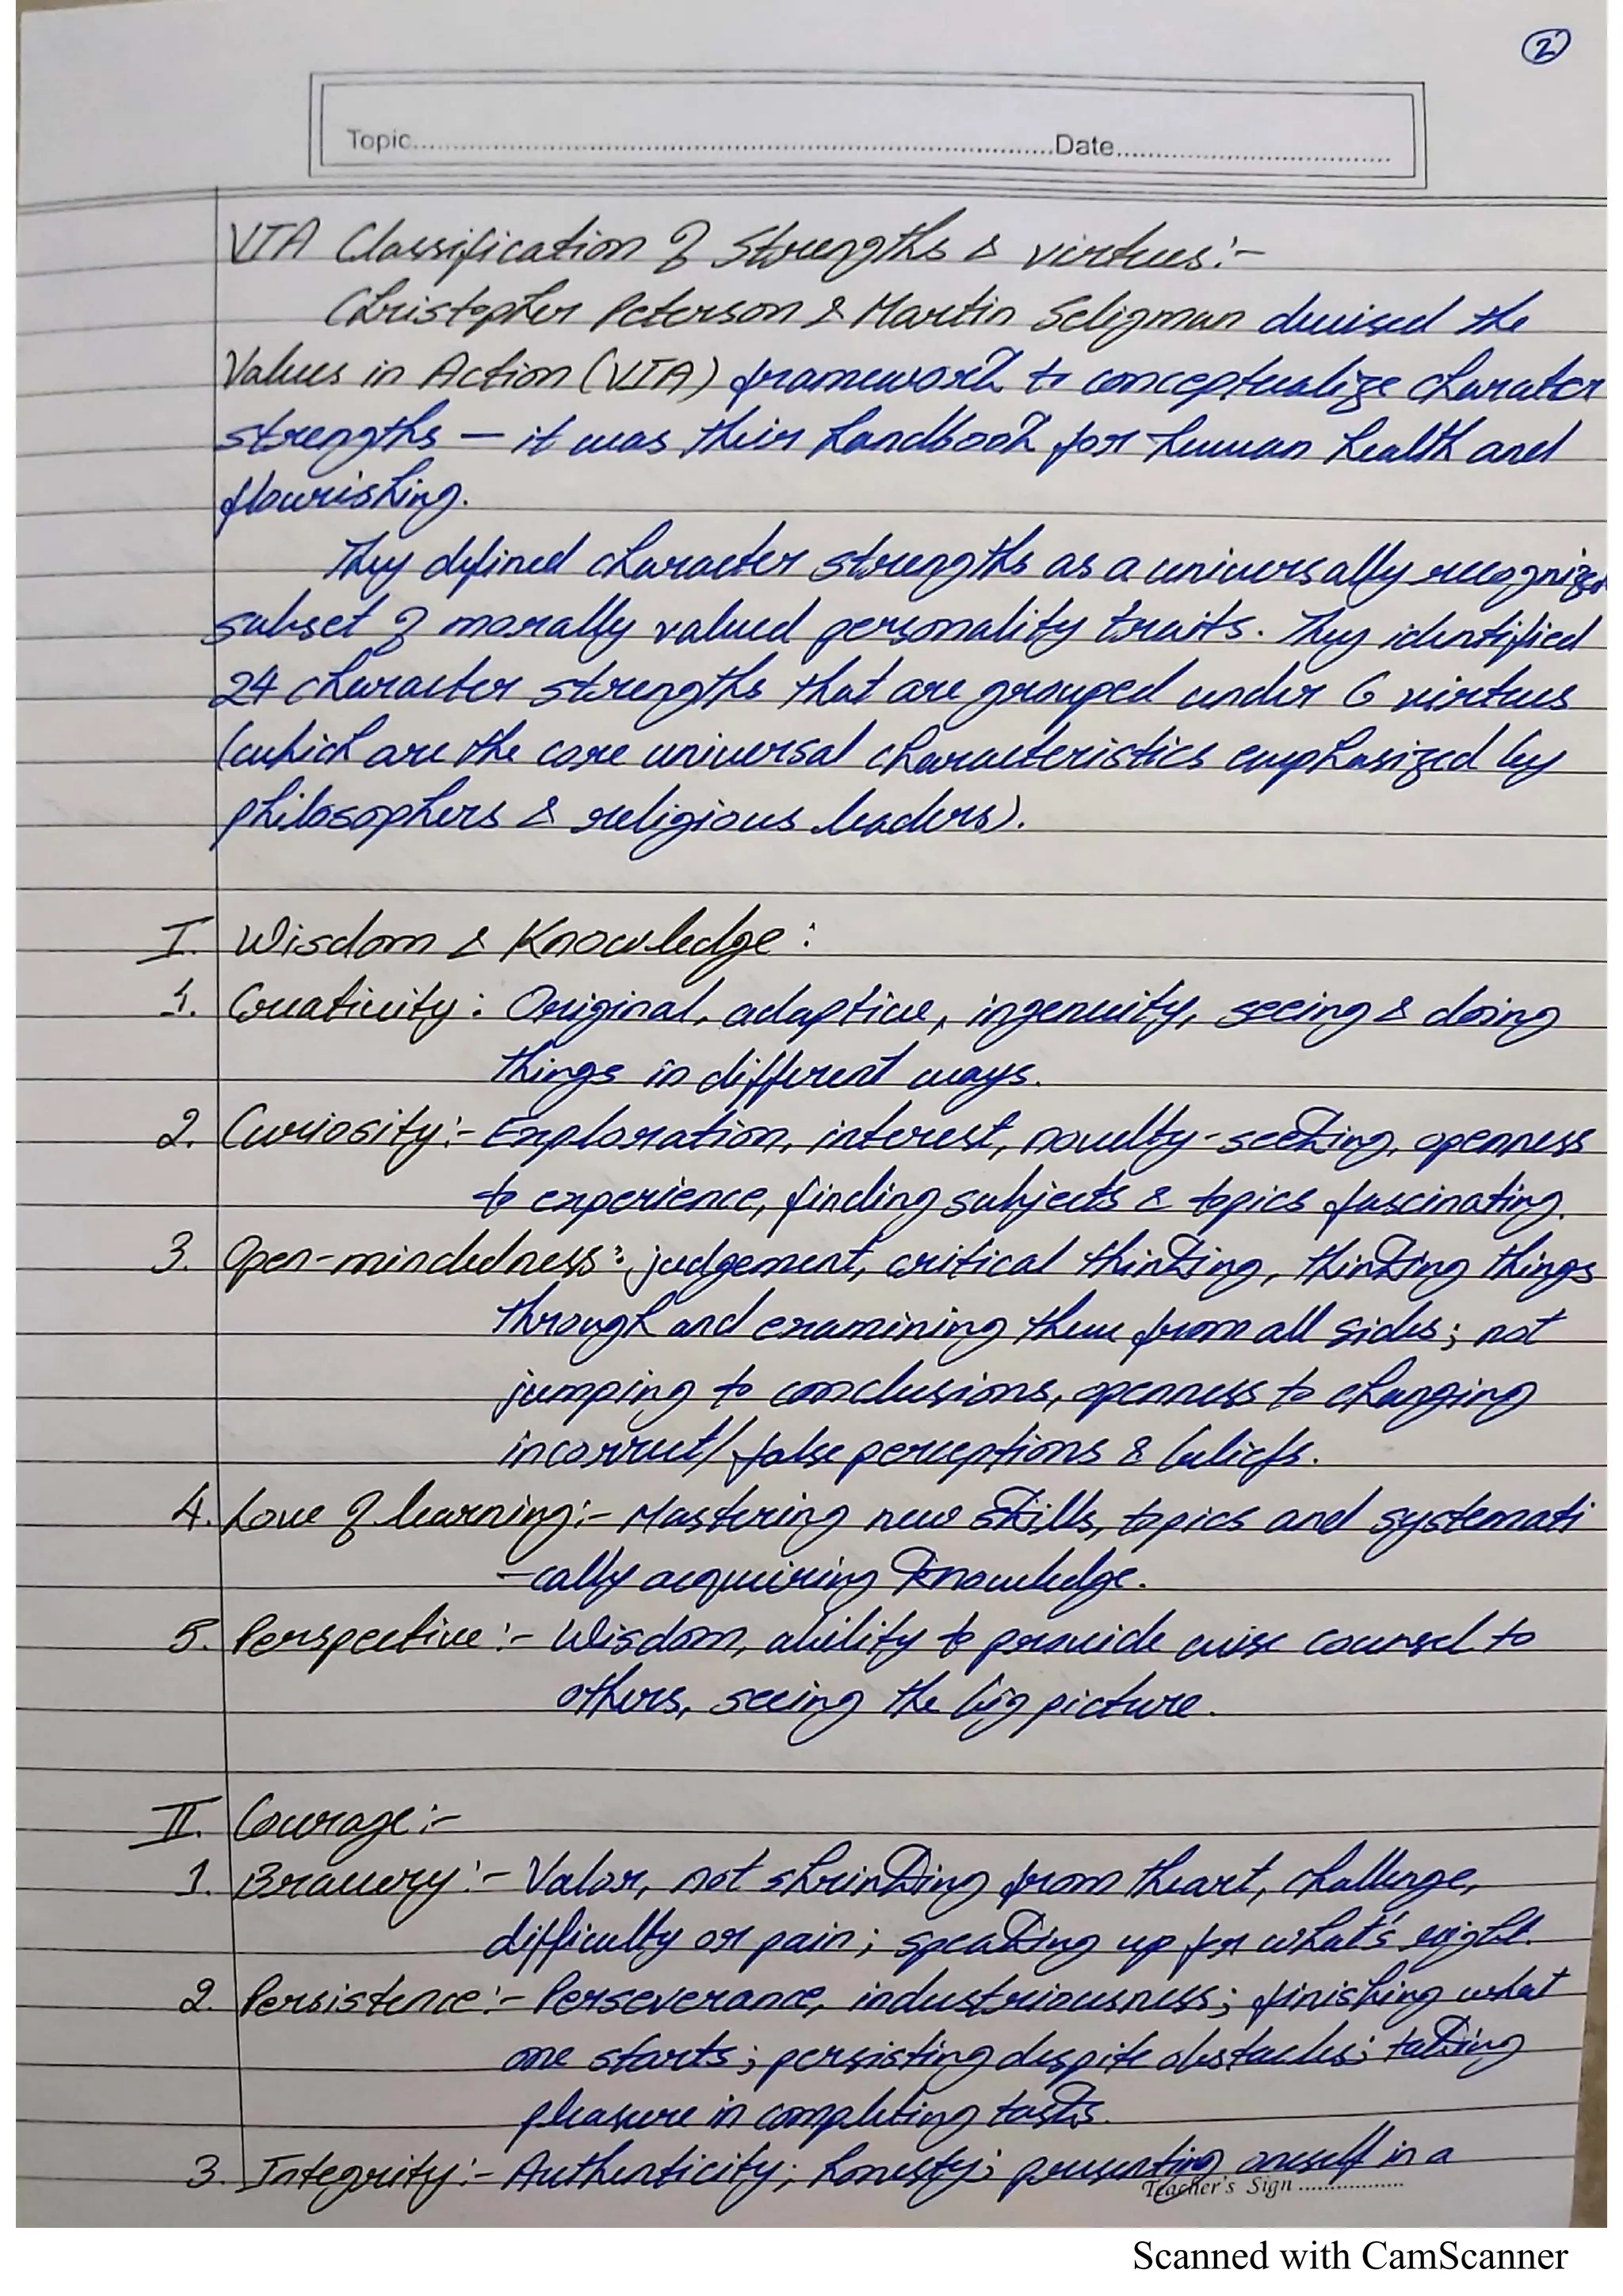 2
Topic..........Date..........
VIA Classification of Strengths & virtues:-
Christopher Peterson & Martin Seligman devised the
Values in Action (VIA) framework to conceptualize charater
strengths – it was their handbook for human health and
flourishing.
They defined character strengths as a universally recognized
subset of morally valued personality traits. They identified
24 character strengths that are grouped under 6 virtues
(which are the core universal characteristics emphasized by
philosophers & religious leaders).
I. Wisdom & Knowledge:
1. Creativity: Original, adaptive, ingenuity, seeing & doing
things in different ways.
2. Curiosity:- Exploration, interest, novelty-seeking, openness
to experience, finding subjects & topics fascinating.
3. Open-mindedness: judgement, critical thinking, thinking things
through and examining them from all sides; not
jumping to conclusions, openness to changing
incorrect/ false perceptions & beliefs.
4. Love of learning:- Mastering new skills, topics and systemati
-cally acquiring knowledge.
5. Perspective:- Wisdom, ability to provide wise counsel to
others, seeing the big picture.
II. Courage:-
1. Bravery:- Valor, not shrinking from theart, challenge,
difficulty or pain; speaking up for what's right.
2. Persistence:- Perseverance, industriousness; finishing what
one starts; persisting despite obstacles; taking
pleasure in completing tasks.
3. Integrity:- Authenticity; honesty; presenting oneself in a
Teacher's Sign ..........
Scanned with CamScanner